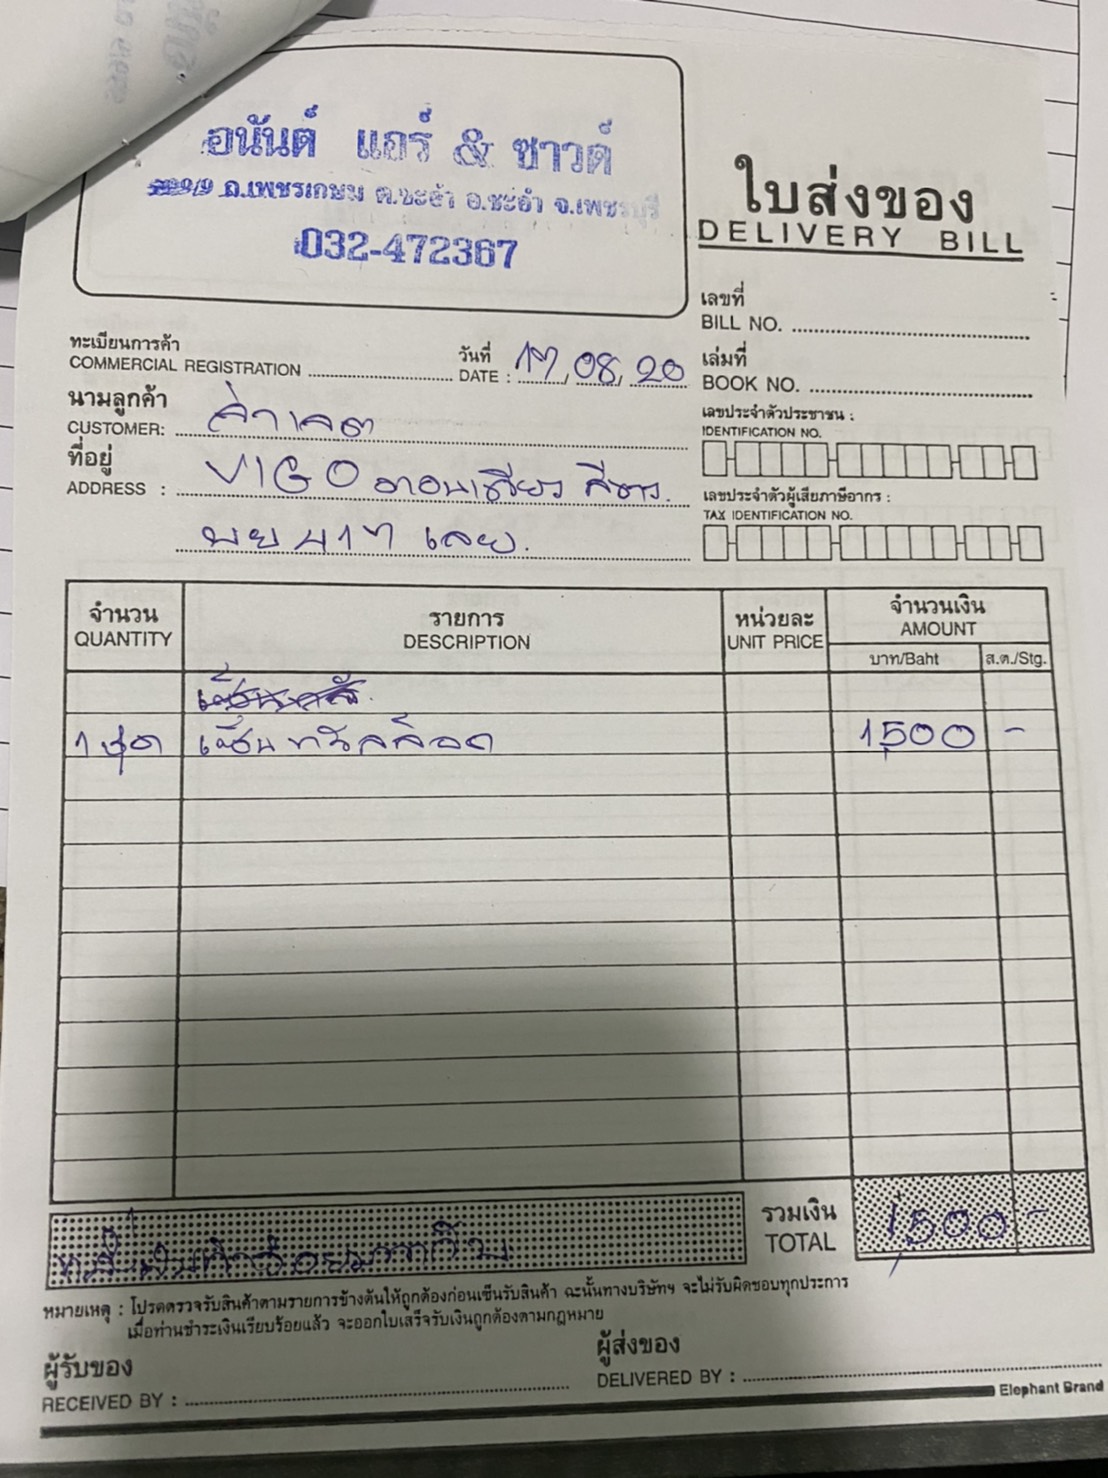 อนันต์ แอร์ & ซาวด์
ถ.เพชรเกษม ต.ชะอำ อ.ชะอำ จ.เพชรบุรี
032-472367
ใบส่งของ
DELIVERY BILL
เลขที่
BILL NO.
ทะเบียนการค้า
COMMERCIAL REGISTRATION
วันที่
DATE : 17, 08, 20
เล่มที่
BOOK NO.
นามลูกค้า
CUSTOMER:
เลขประจำตัวประชาชน :
IDENTIFICATION NO.
ที่อยู่
ADDRESS : VIGO ตอนเดียว สีขาว.
เลขประจำตัวผู้เสียภาษีอากร :
TAX IDENTIFICATION NO.
417 เลย.
จำนวน
QUANTITY
รายการ
DESCRIPTION
หน่วยละ
UNIT PRICE
จำนวนเงิน
AMOUNT
บาท/Baht
ส.ต./Stg.
1 ชุด เซ็นทรัลล็อค 1,500 -
หนึ่งพันห้าร้อยบาทถ้วน
รวมเงิน
TOTAL
1,500 -
หมายเหตุ : โปรดตรวจรับสินค้าตามรายการข้างต้นให้ถูกต้องก่อนเซ็นรับสินค้า ฉะนั้นทางบริษัทฯ จะไม่รับผิดชอบทุกประการ
เมื่อท่านชำระเงินเรียบร้อยแล้ว จะออกใบเสร็จรับเงินถูกต้องตามกฎหมาย
ผู้รับของ
RECEIVED BY :
ผู้ส่งของ
DELIVERED BY :
Elephant Brand